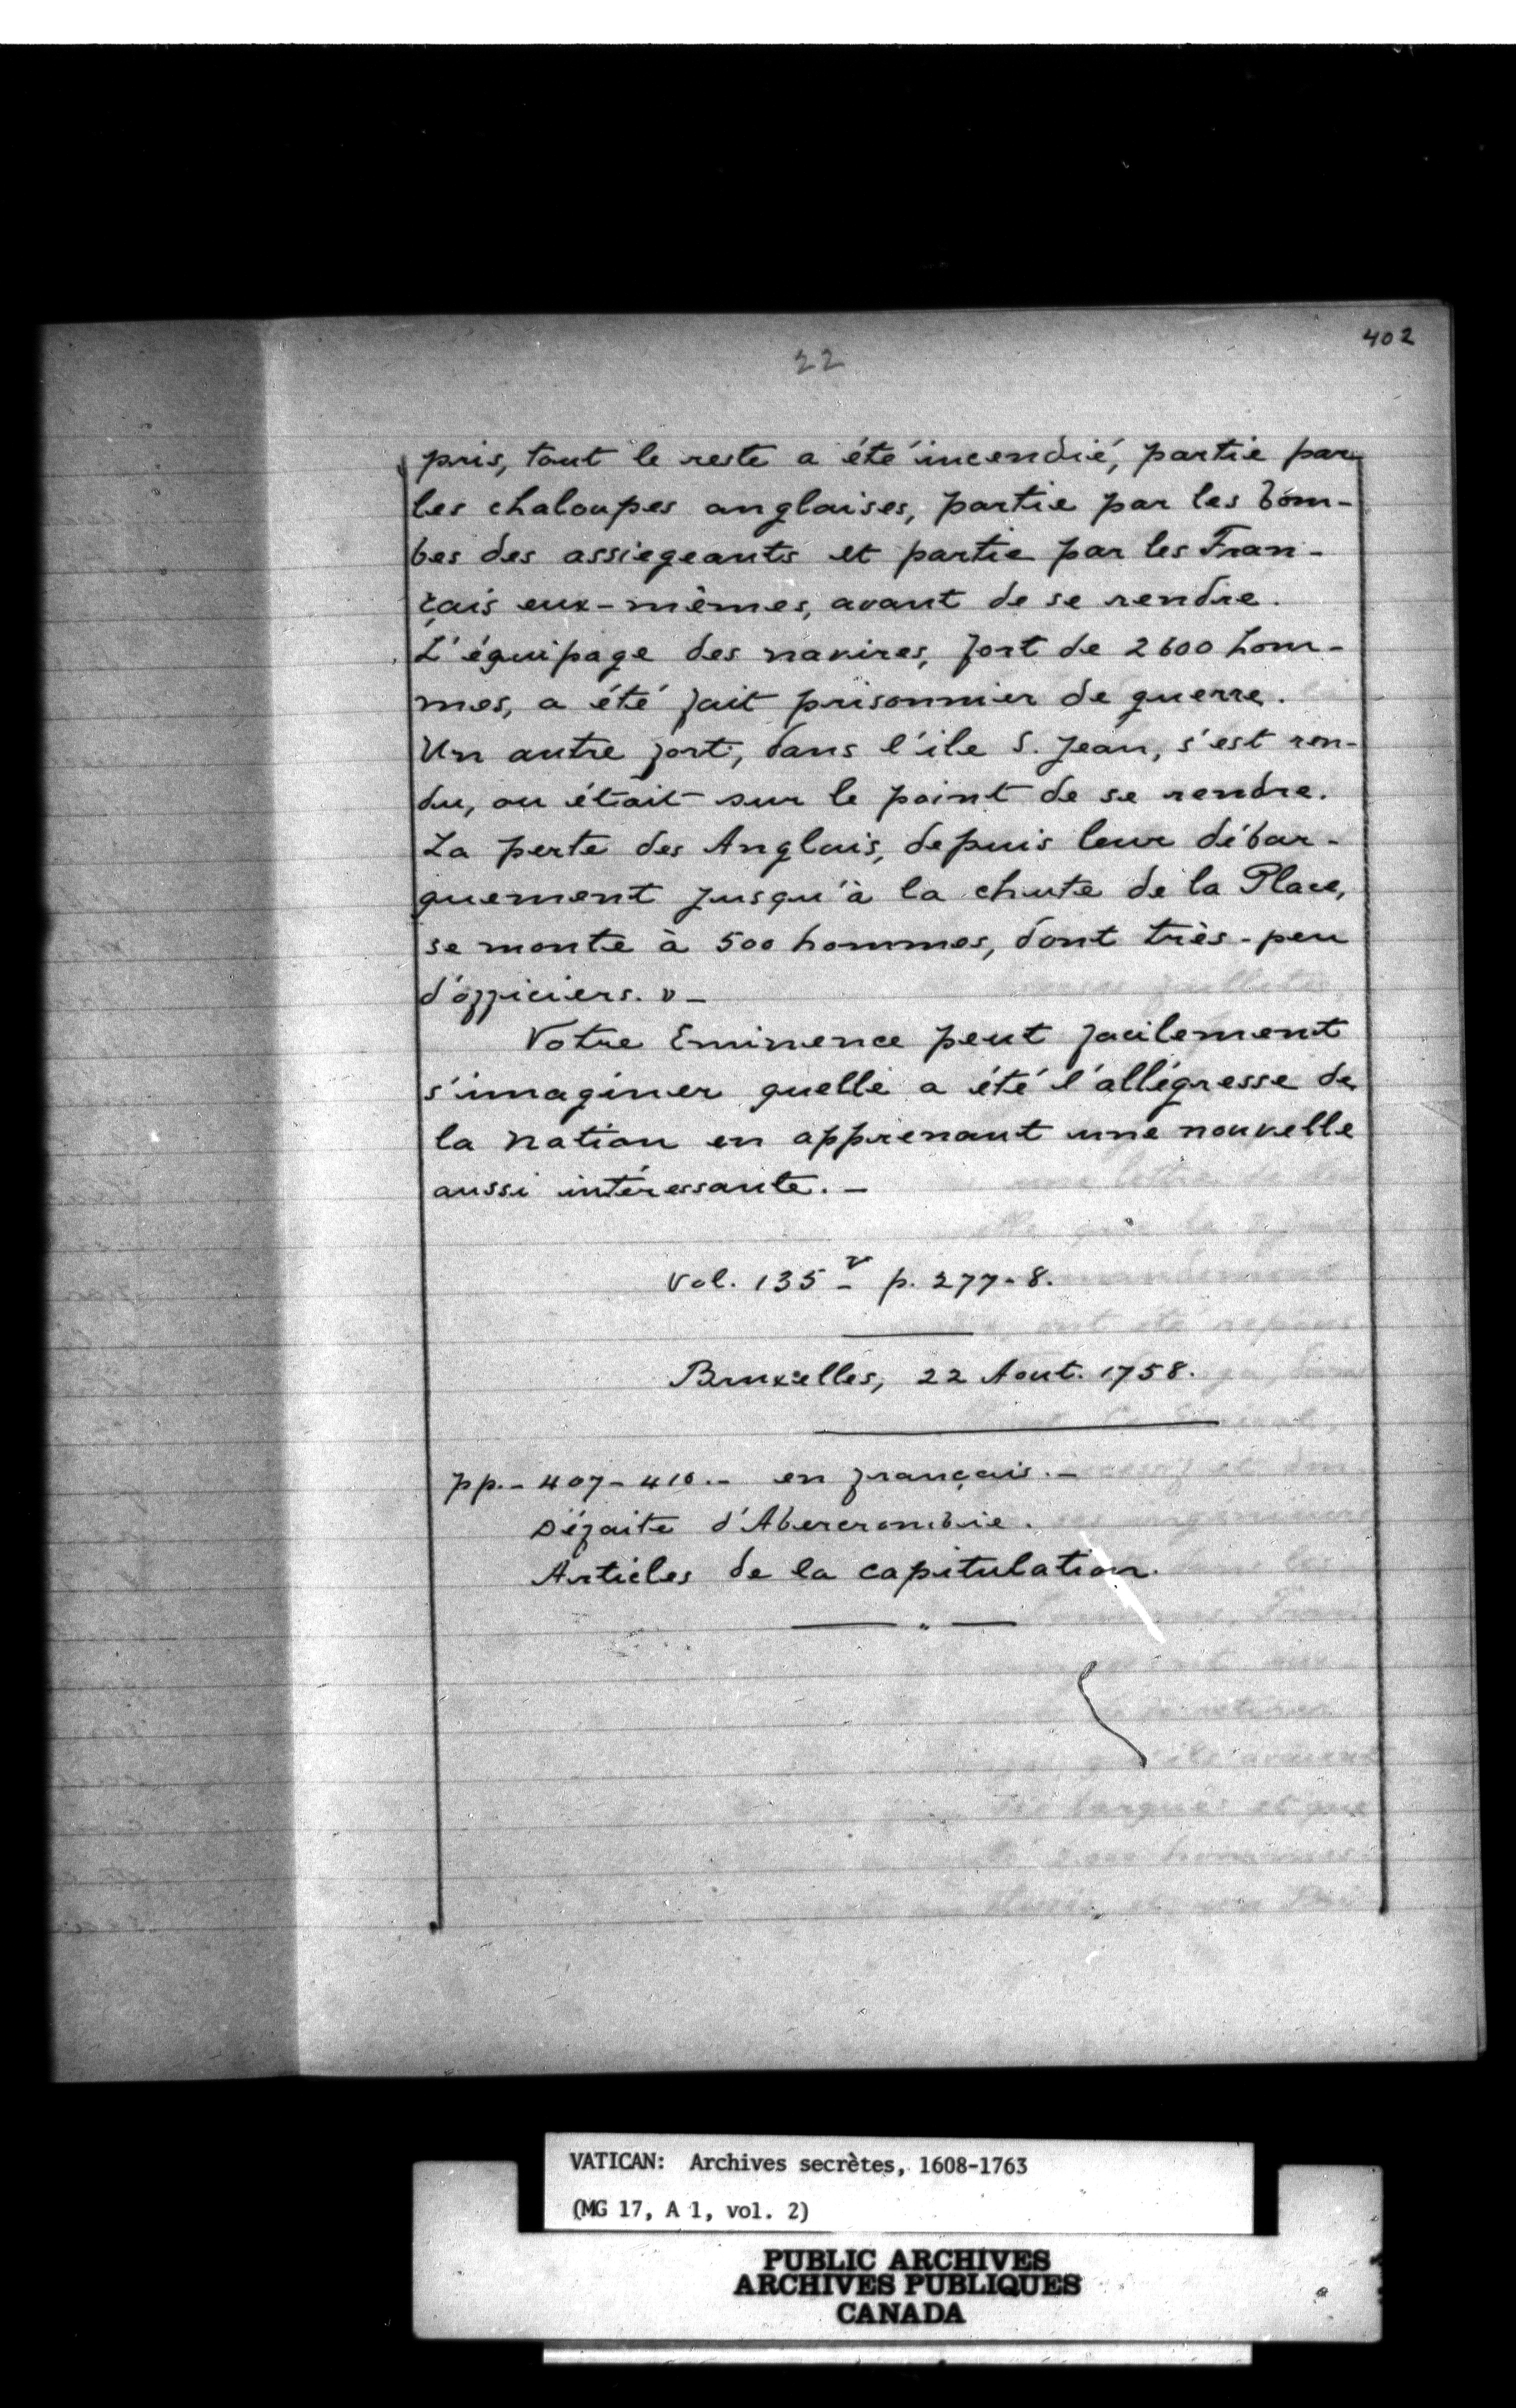 402
22
pris, tout le reste a été incendié, partie par
les chaloupes anglaises, partie par les bom-
bes des assiegeants et partie par les Fran-
çais eux-mêmes, avant de se rendre.
L'équipage des navires, fort de 2600 hom-
mes, a été fait prisonnier de guerre.
Un autre fort, dans l'ile S. Jean, s'est ren-
du, ou était sur le point de se rendre.
La perte des Anglais, depuis leur débar-
quement jusqu'à la chute de la Place,
se monte à 500 hommes, dont très-peu
d'officiers. » -
Votre Eminence peut facilement
s'imaginer quelle a été l'allégresse de
la nation en apprenant une nouvelle
aussi intéressante. -
Vol. 135 - v p. 277-8.
Bruxelles, 22 Aout. 1758.
pp. - 407 - 410. - en français. -
Défaite d'Abercrombie.
Articles de la capitulation.
VATICAN: Archives secrètes, 1608-1763
(MG 17, A 1, vol. 2)
PUBLIC ARCHIVES
ARCHIVES PUBLIQUES
CANADA